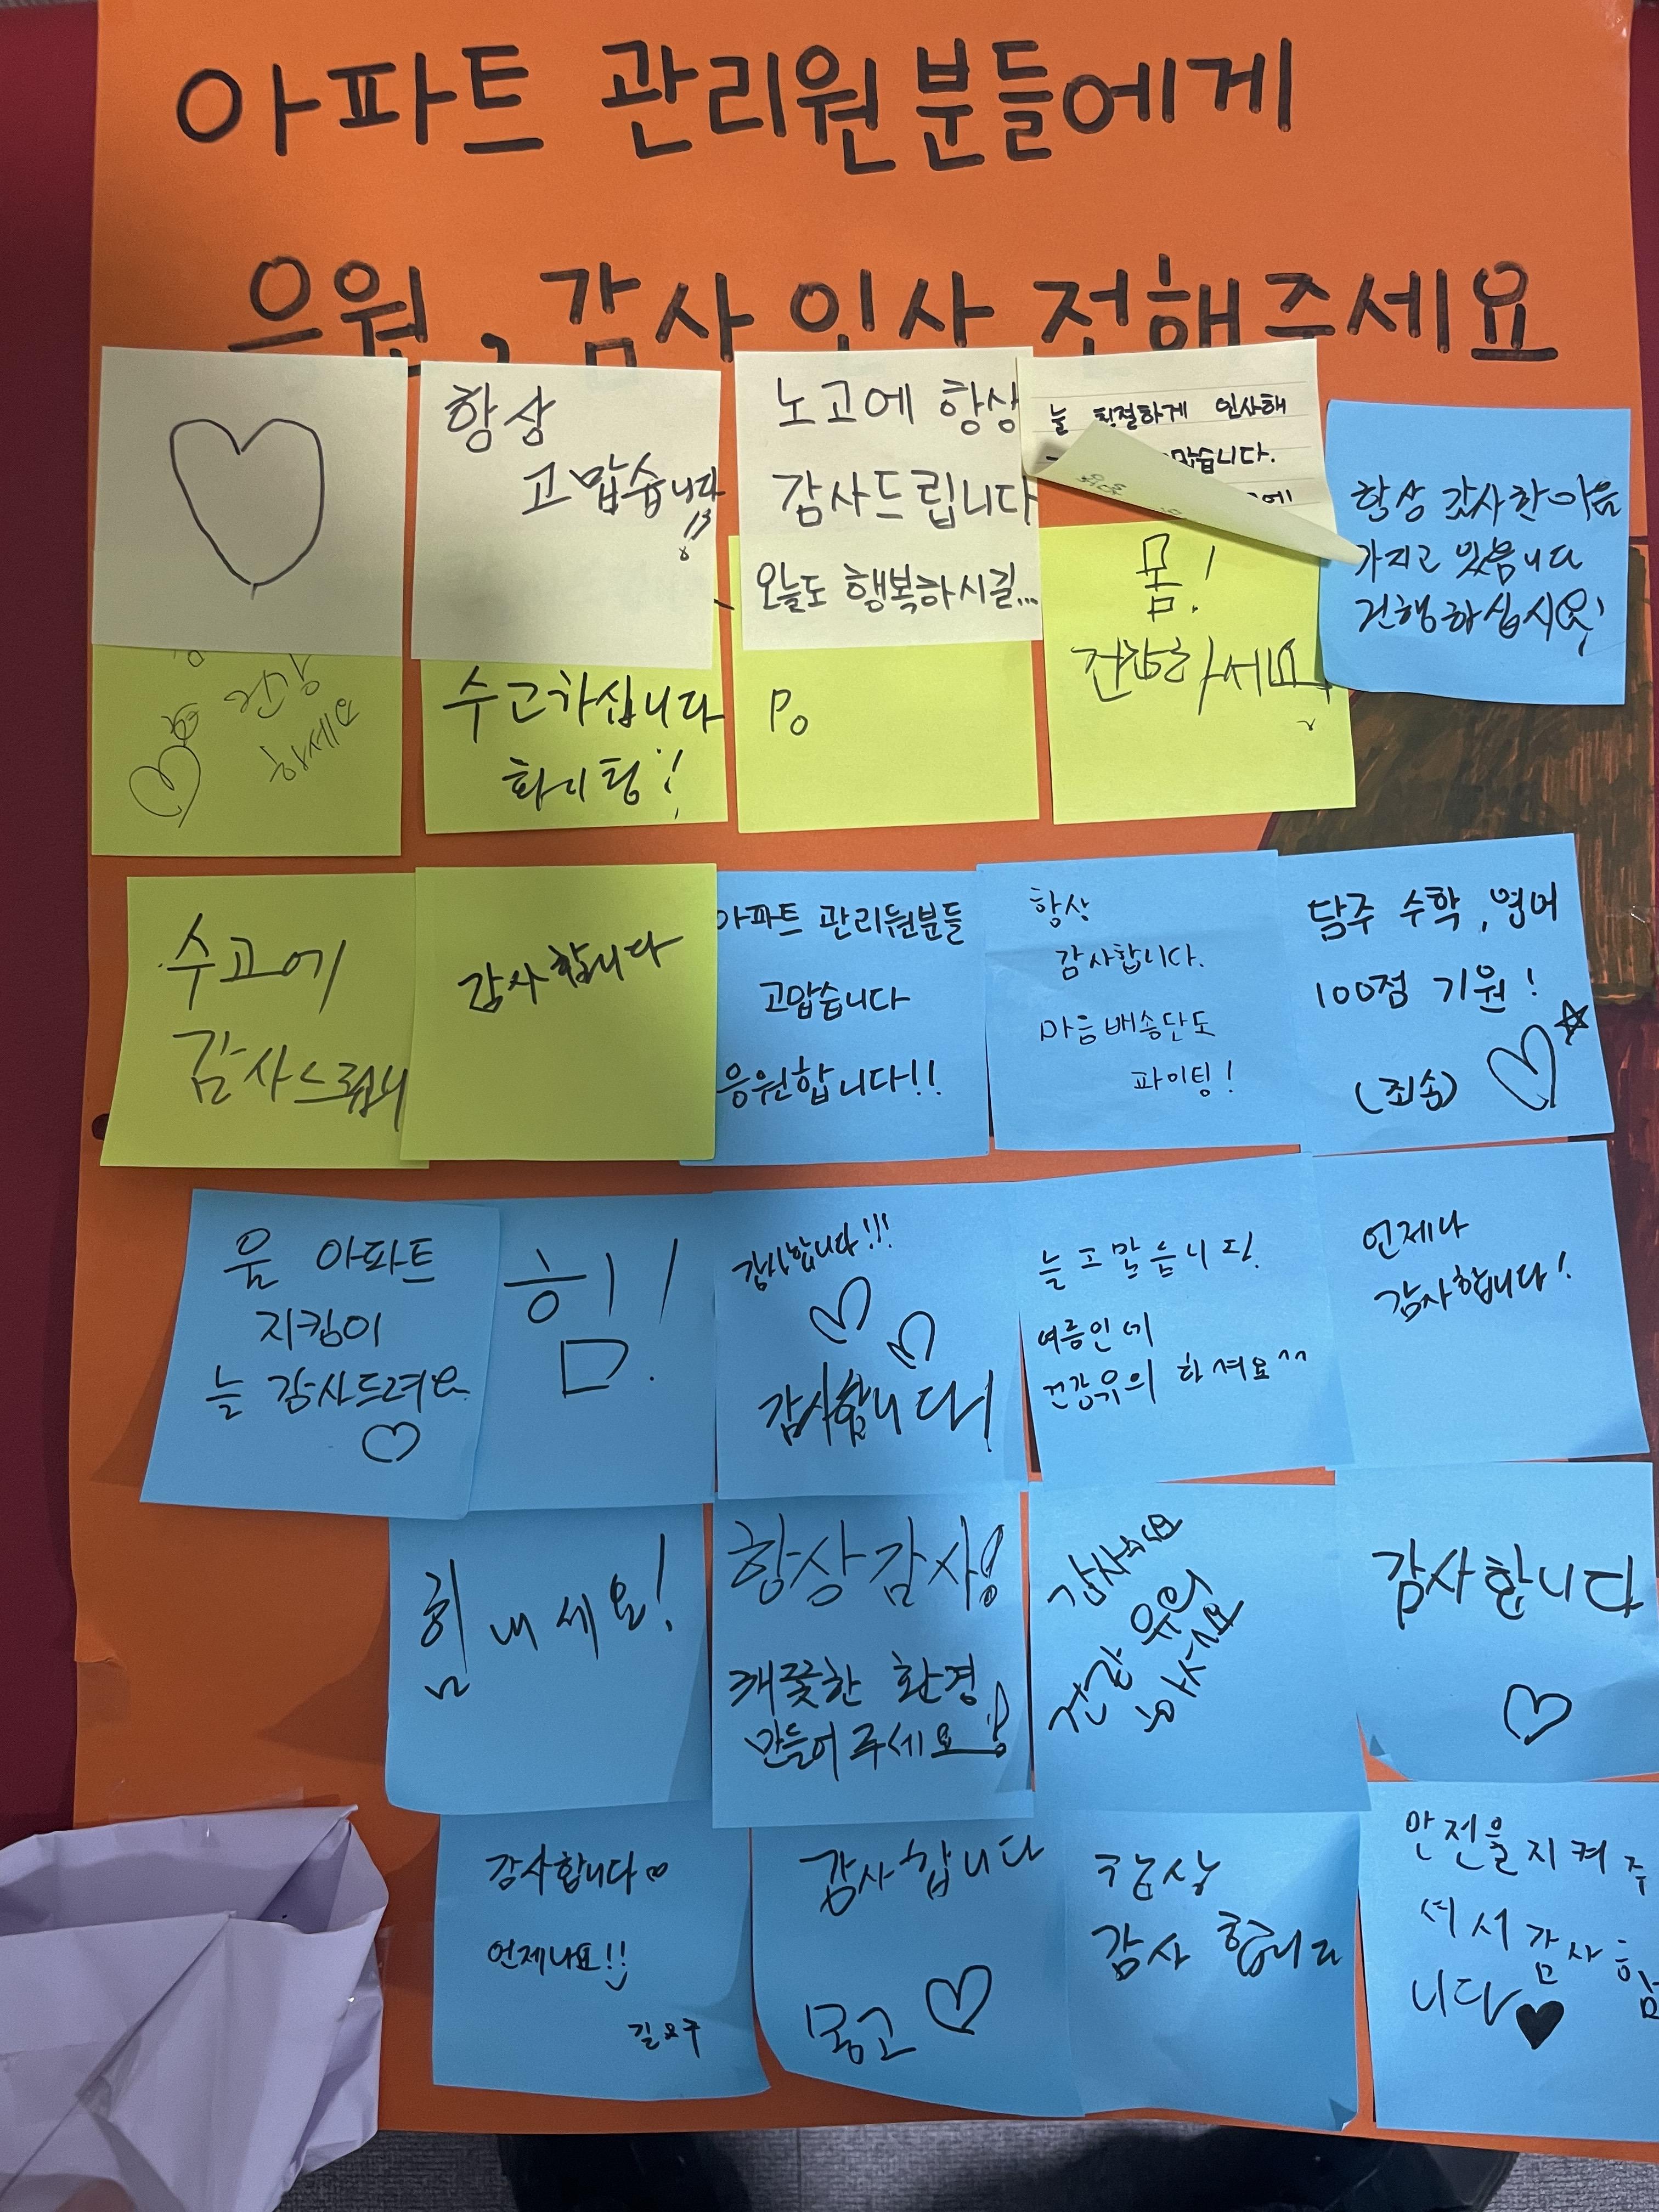 아파트 관리원분들에게
응원, 감사 인사 전해주세요
항상
고맙습니다
노고에 항상
감사드립니다
오늘도 행복하시길...
늘 친절하게 인사해
맙습니다.
에
항상 감사한 마음
가지고 있습니다
건행하십시오!
건강
하세요
수고하십니다
화이팅!
몸!
건강하세요
수고에
감사드립니
감사합니다
아파트 관리원분들
고맙습니다
응원합니다!!
항상
감사합니다.
마음배송단도
파이팅!
담주 수학, 영어
100점 기원!
(죄송)
움 아파트
지킴이
늘 감사드려요
힘!
감사합니다!!!
감사합니다!
늘 고맙습니다!
여름인데
건강유의 하셔요^^
언제나
감사합니다!
힘내세요!
항상감사!
깨끗한 환경
만들어주세요!
건강 유의
하세요
감사합니다
감사합니다
언제나요!!
감사합니다
몽고
항상
감사합니다
안전을지켜주
셔서 감사합
니다